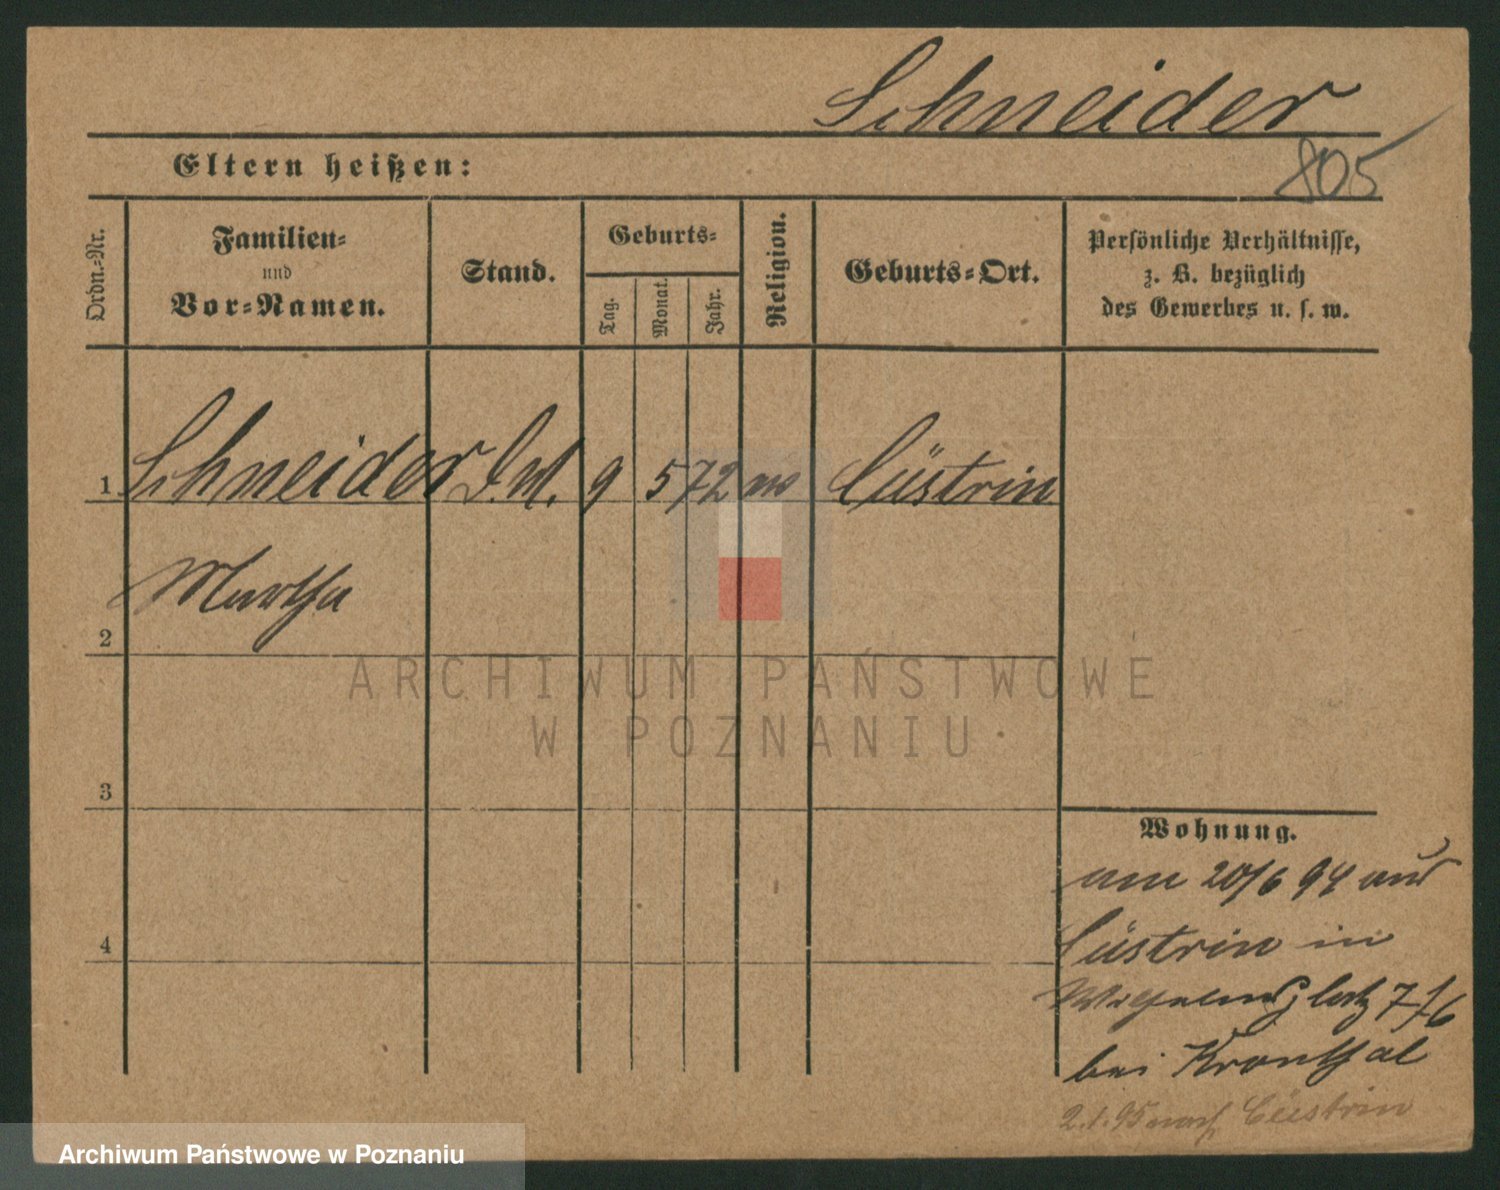 Schneider
805
Eltern heißen:
Ordn.-Nr.
Familien-
und
Vor-Namen.
Stand.
Geburts-
Tag.
Monat.
Jahr.
Religion.
Geburts-Ort.
Persönliche Verhältnisse,
z. B. bezüglich
des Gewerbes u. s. w.
1 Schneider 9 5 72 mos Cüstrin
Martha
2
3
4
ARCHIWUM PAŃSTWOWE
W POZNANIU
Wohnung.
am 20/6 94 aus
Cüstrin in
Wilhelmsplatz 7/6
bei Kronthal
2.1.95 nach Cüstrin
Archiwum Państwowe w Poznaniu